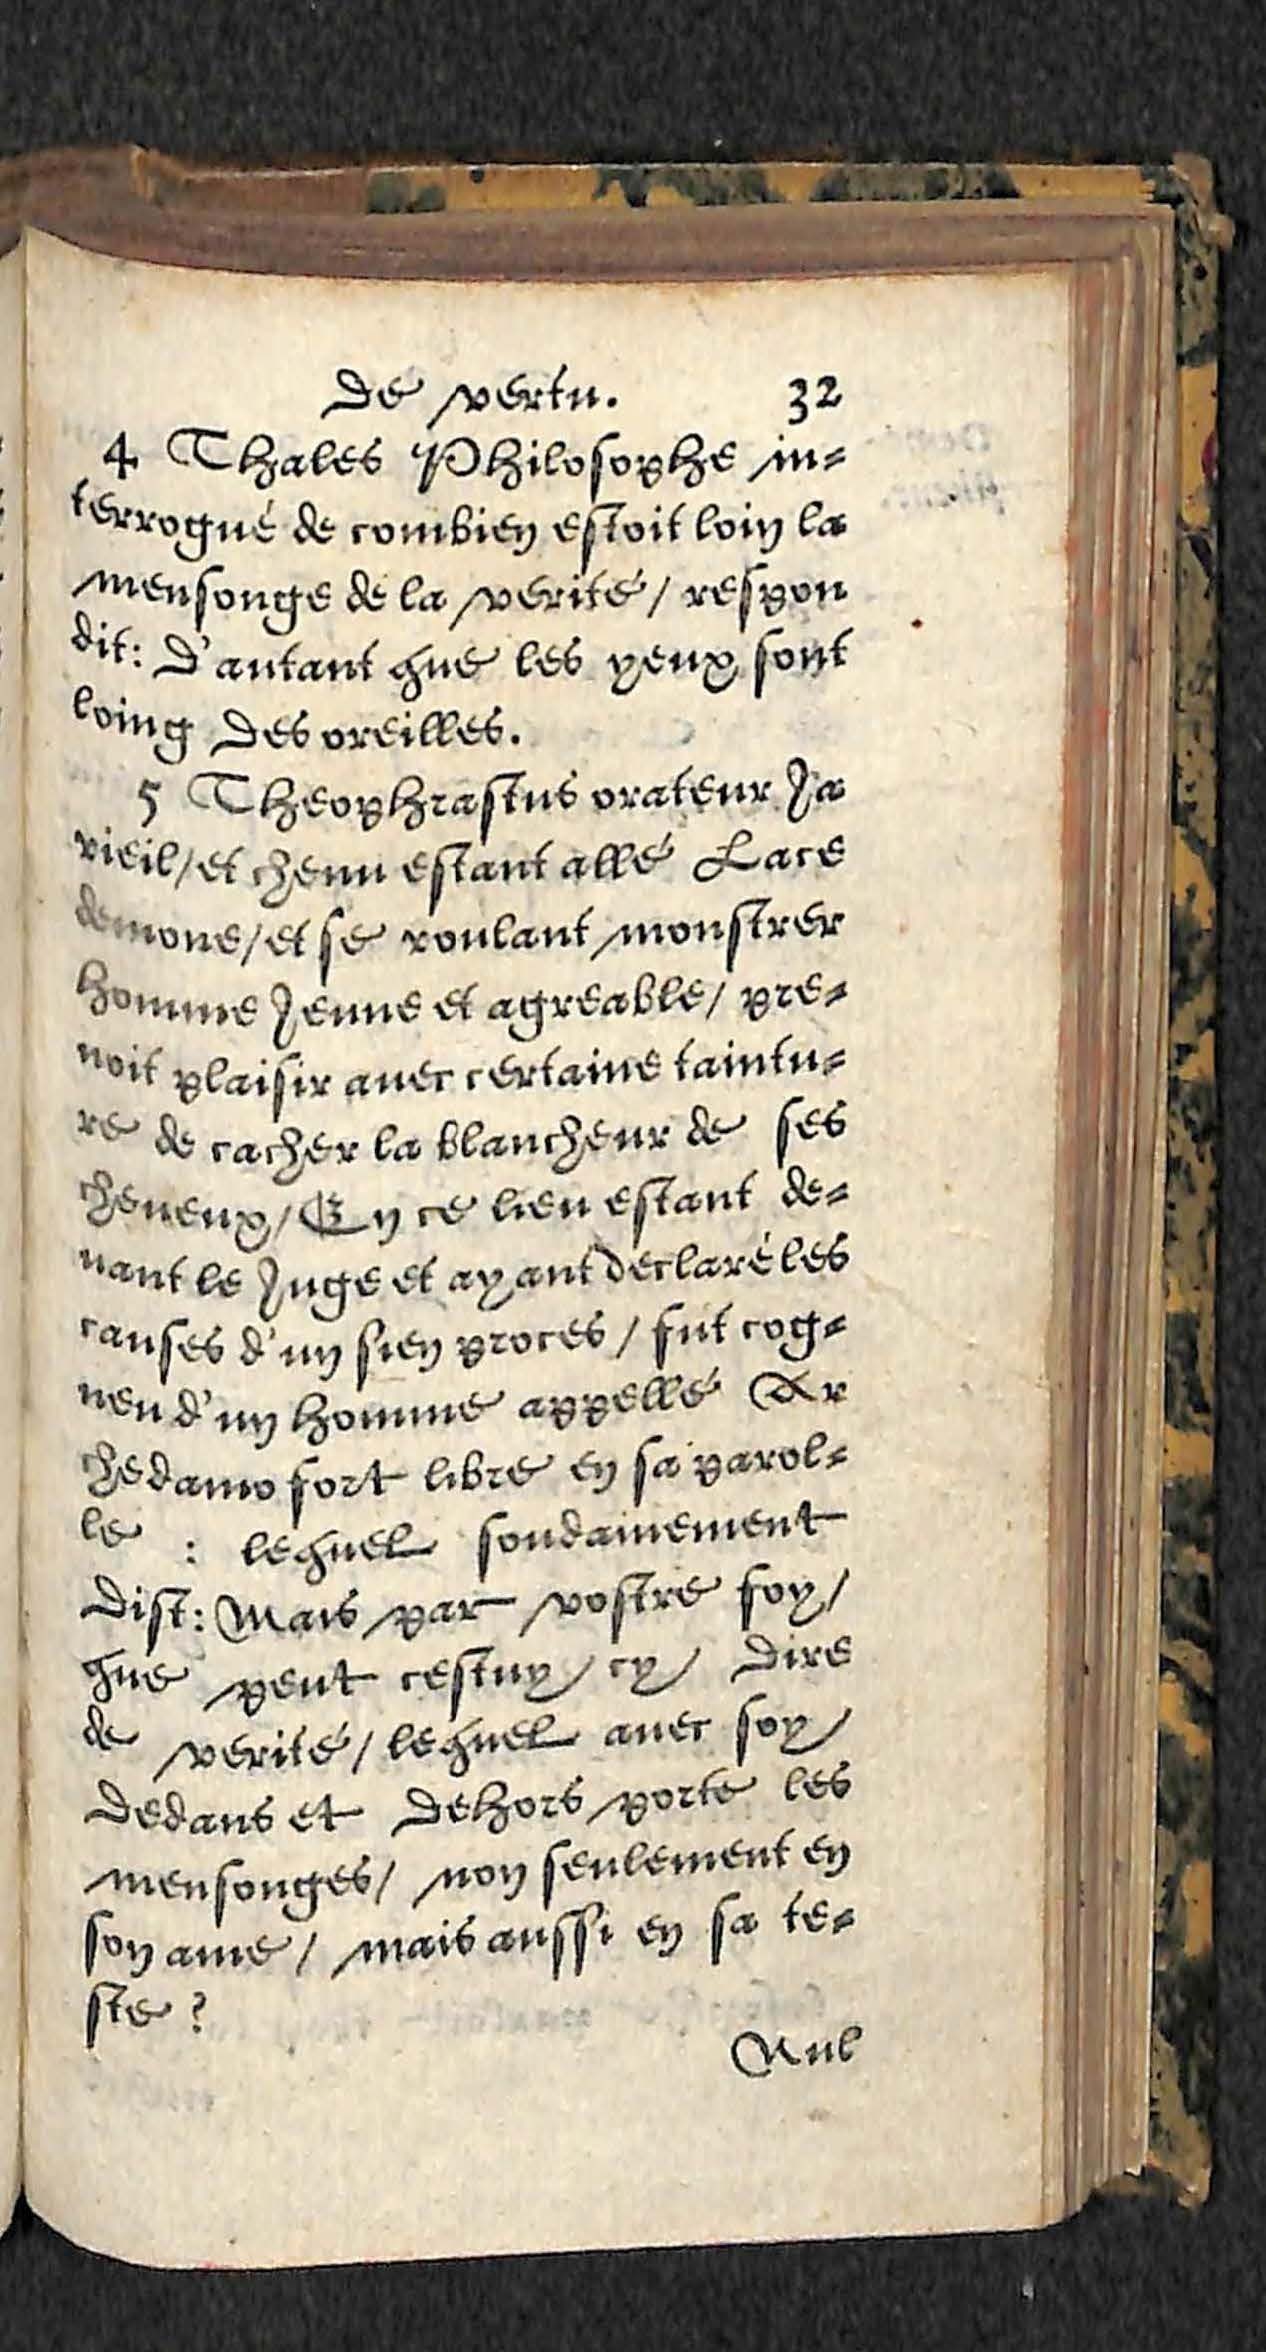 De vertu. 32
4 Thales Philosophe in-
terrogué de combien estoit loin la
mensonge de la verité / respon
dit: D'autant que les yeux sont
loing des oreilles.
5 Theophrastus orateur Ja
vieil / et chenu estant allé Lace
demone / et se voulant monstrer
homme Jeune et agreable / pre-
noit plaisir auec certaine taintu-
re de cacher la blancheur de ses
cheueux / En ce lieu estant de-
uant le Juge et ayant declaré les
causes d'un sien proces / fut cog-
neu d'un homme appellé Ar
chedamo fort libre en sa parol-
le : lequel soudainement
dist: Mais par vostre foy /
que peut cestuy cy dire
de verité / lequel auec soy
dedans et dehors porte les
mensonges / non seulement en
son ame / mais aussi en sa te-
ste ?
Aul